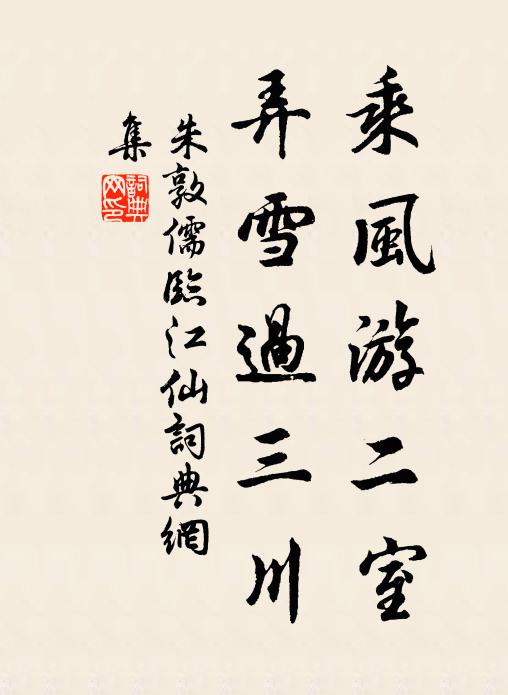 乘風游二室
弄雪過三川
朱敦儒臨江仙詞典網
集
詞典網印